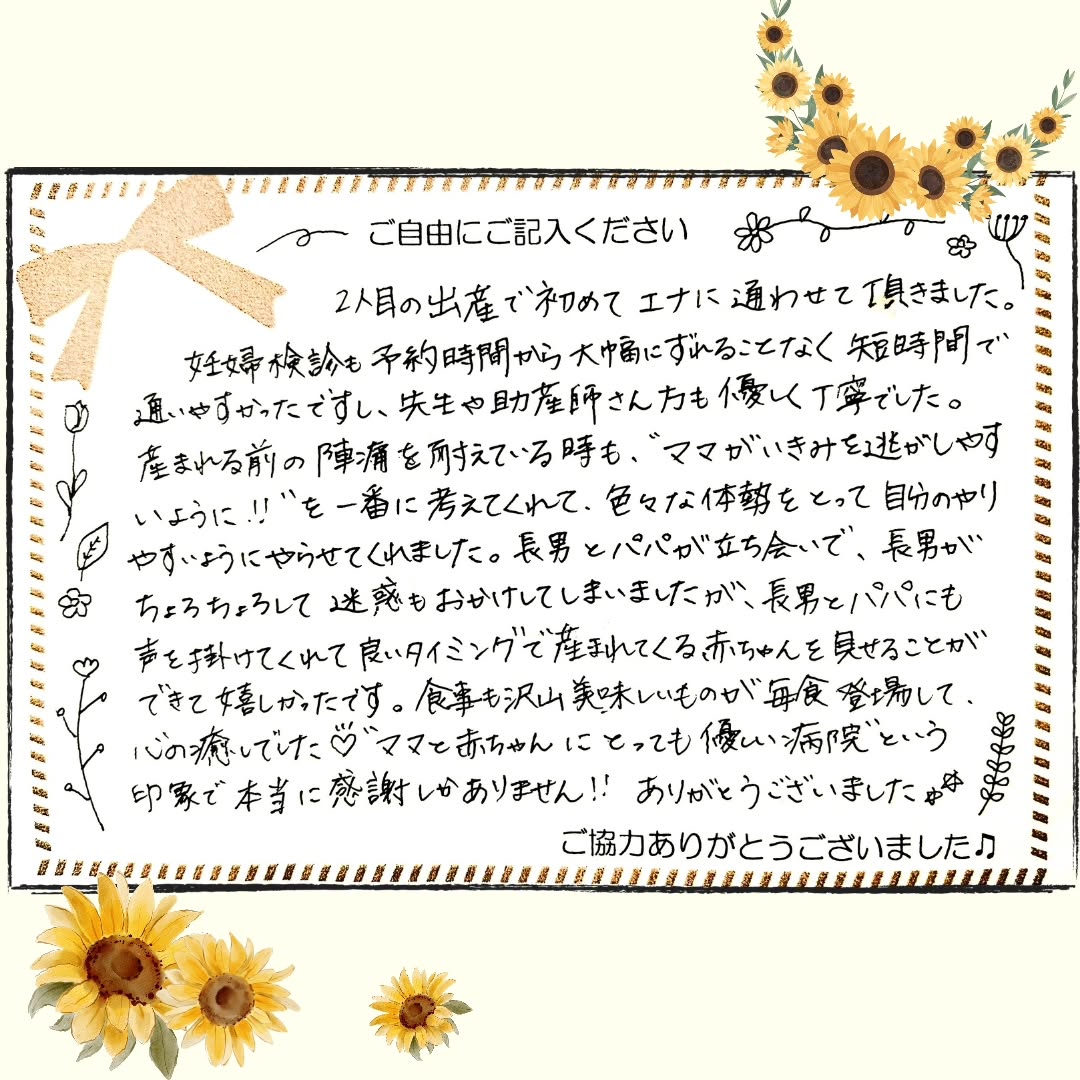 ご自由にご記入ください
2人目の出産で初めてエナに通わせて頂きました。
妊婦検診も予約時間から大幅にずれることなく短時間で
通いやすかったですし、先生や助産師さん方も優しく丁寧でした。
産まれる前の陣痛を耐えている時も、"ママがいきみを逃がしやす
いように!!"を一番に考えてくれて、色々な体勢をとって自分のやり
やすいようにやらせてくれました。長男とパパが立ち会いで、長男が
ちょろちょろして迷惑もおかけしてしまいましたが、長男とパパにも
声を掛けてくれて良いタイミングで産まれてくる赤ちゃんを見せることが
できて嬉しかったです。食事も沢山美味しいものが毎食登場して、
心の癒しでした♡"ママと赤ちゃんにとっても優しい病院"という
印象で本当に感謝しかありません!! ありがとうございました
ご協力ありがとうございました♫